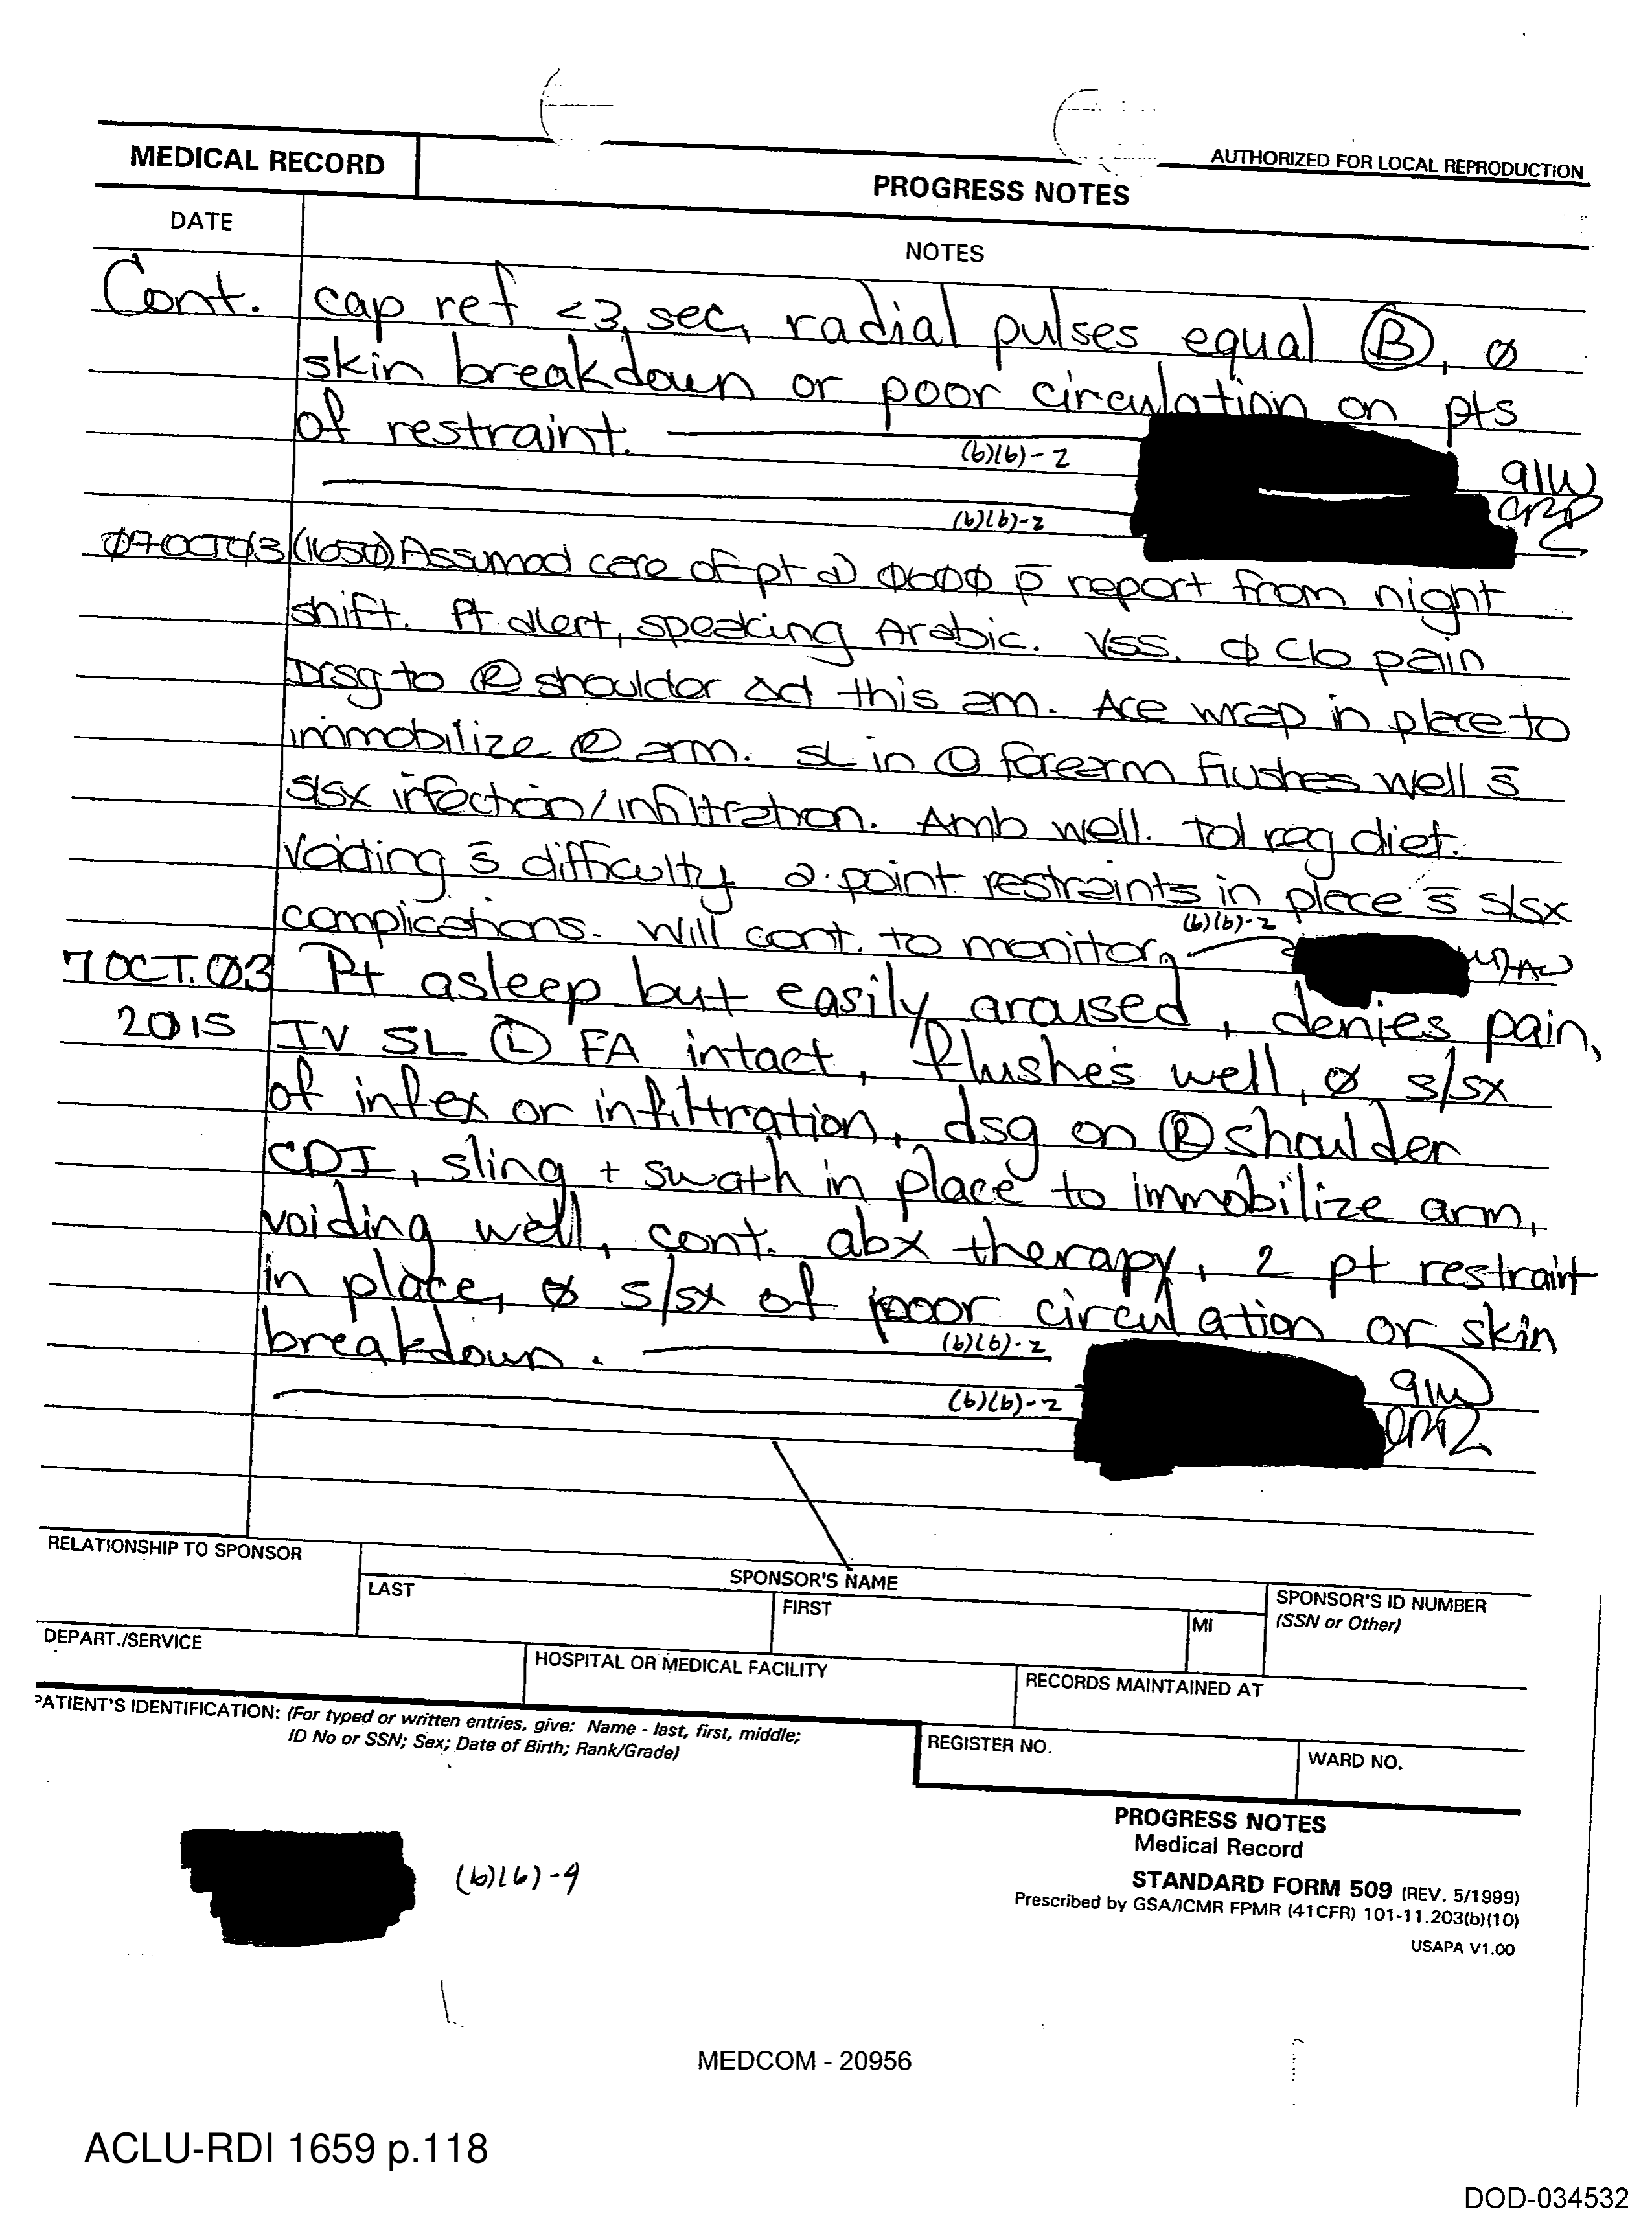 AUTHORIZED FOR LOCAL REPRODUCTION
MEDICAL RECORD
PROGRESS NOTES
DATE
NOTES
Cont. cap ref <3 sec, radial pulses equal Ⓑ, ø
skin breakdown or poor circulation on pts
of restraint.
(b)(6)-2
91W
(b)(6)-2
07OCT03 (1650) Assumed care of pt @ 0600 p̄ report from night
shift. Pt alert, speaking Arabic. VSS. ø c/o pain
Drsg to Ⓡ shoulder Δd this am. Ace wrap in place to
immobilize Ⓡ arm. SL in Ⓛ forearm flushes well s̄
s/sx infection/infiltration. Amb well. Tol reg diet.
Voiding s̄ difficulty 2-point restraints in place s̄ s/sx
complications. Will cont. to monitor,
(b)(6)-2
7 OCT. 03 Pt asleep but easily aroused, denies pain,
2015 IV SL Ⓛ FA intact, flushes well, ø s/sx
of infex or infiltration, dsg on Ⓡ shoulder
CDI, sling + swath in place to immobilize arm,
voiding well, cont. abx therapy, 2 pt restraint
in place, ø s/sx of poor circulation or skin
breakdown.
(b)(6)-2
91W
(b)(6)-2
RELATIONSHIP TO SPONSOR
SPONSOR'S NAME
LAST
FIRST
MI
SPONSOR'S ID NUMBER
(SSN or Other)
DEPART./SERVICE
HOSPITAL OR MEDICAL FACILITY
RECORDS MAINTAINED AT
PATIENT'S IDENTIFICATION: (For typed or written entries, give: Name - last, first, middle;
ID No or SSN; Sex; Date of Birth; Rank/Grade)
REGISTER NO.
WARD NO.
(b)(6)-4
PROGRESS NOTES
Medical Record
STANDARD FORM 509 (REV. 5/1999)
Prescribed by GSA/ICMR FPMR (41CFR) 101-11.203(b)(10)
USAPA V1.00
MEDCOM - 20956
ACLU-RDI 1659 p.118
DOD-034532